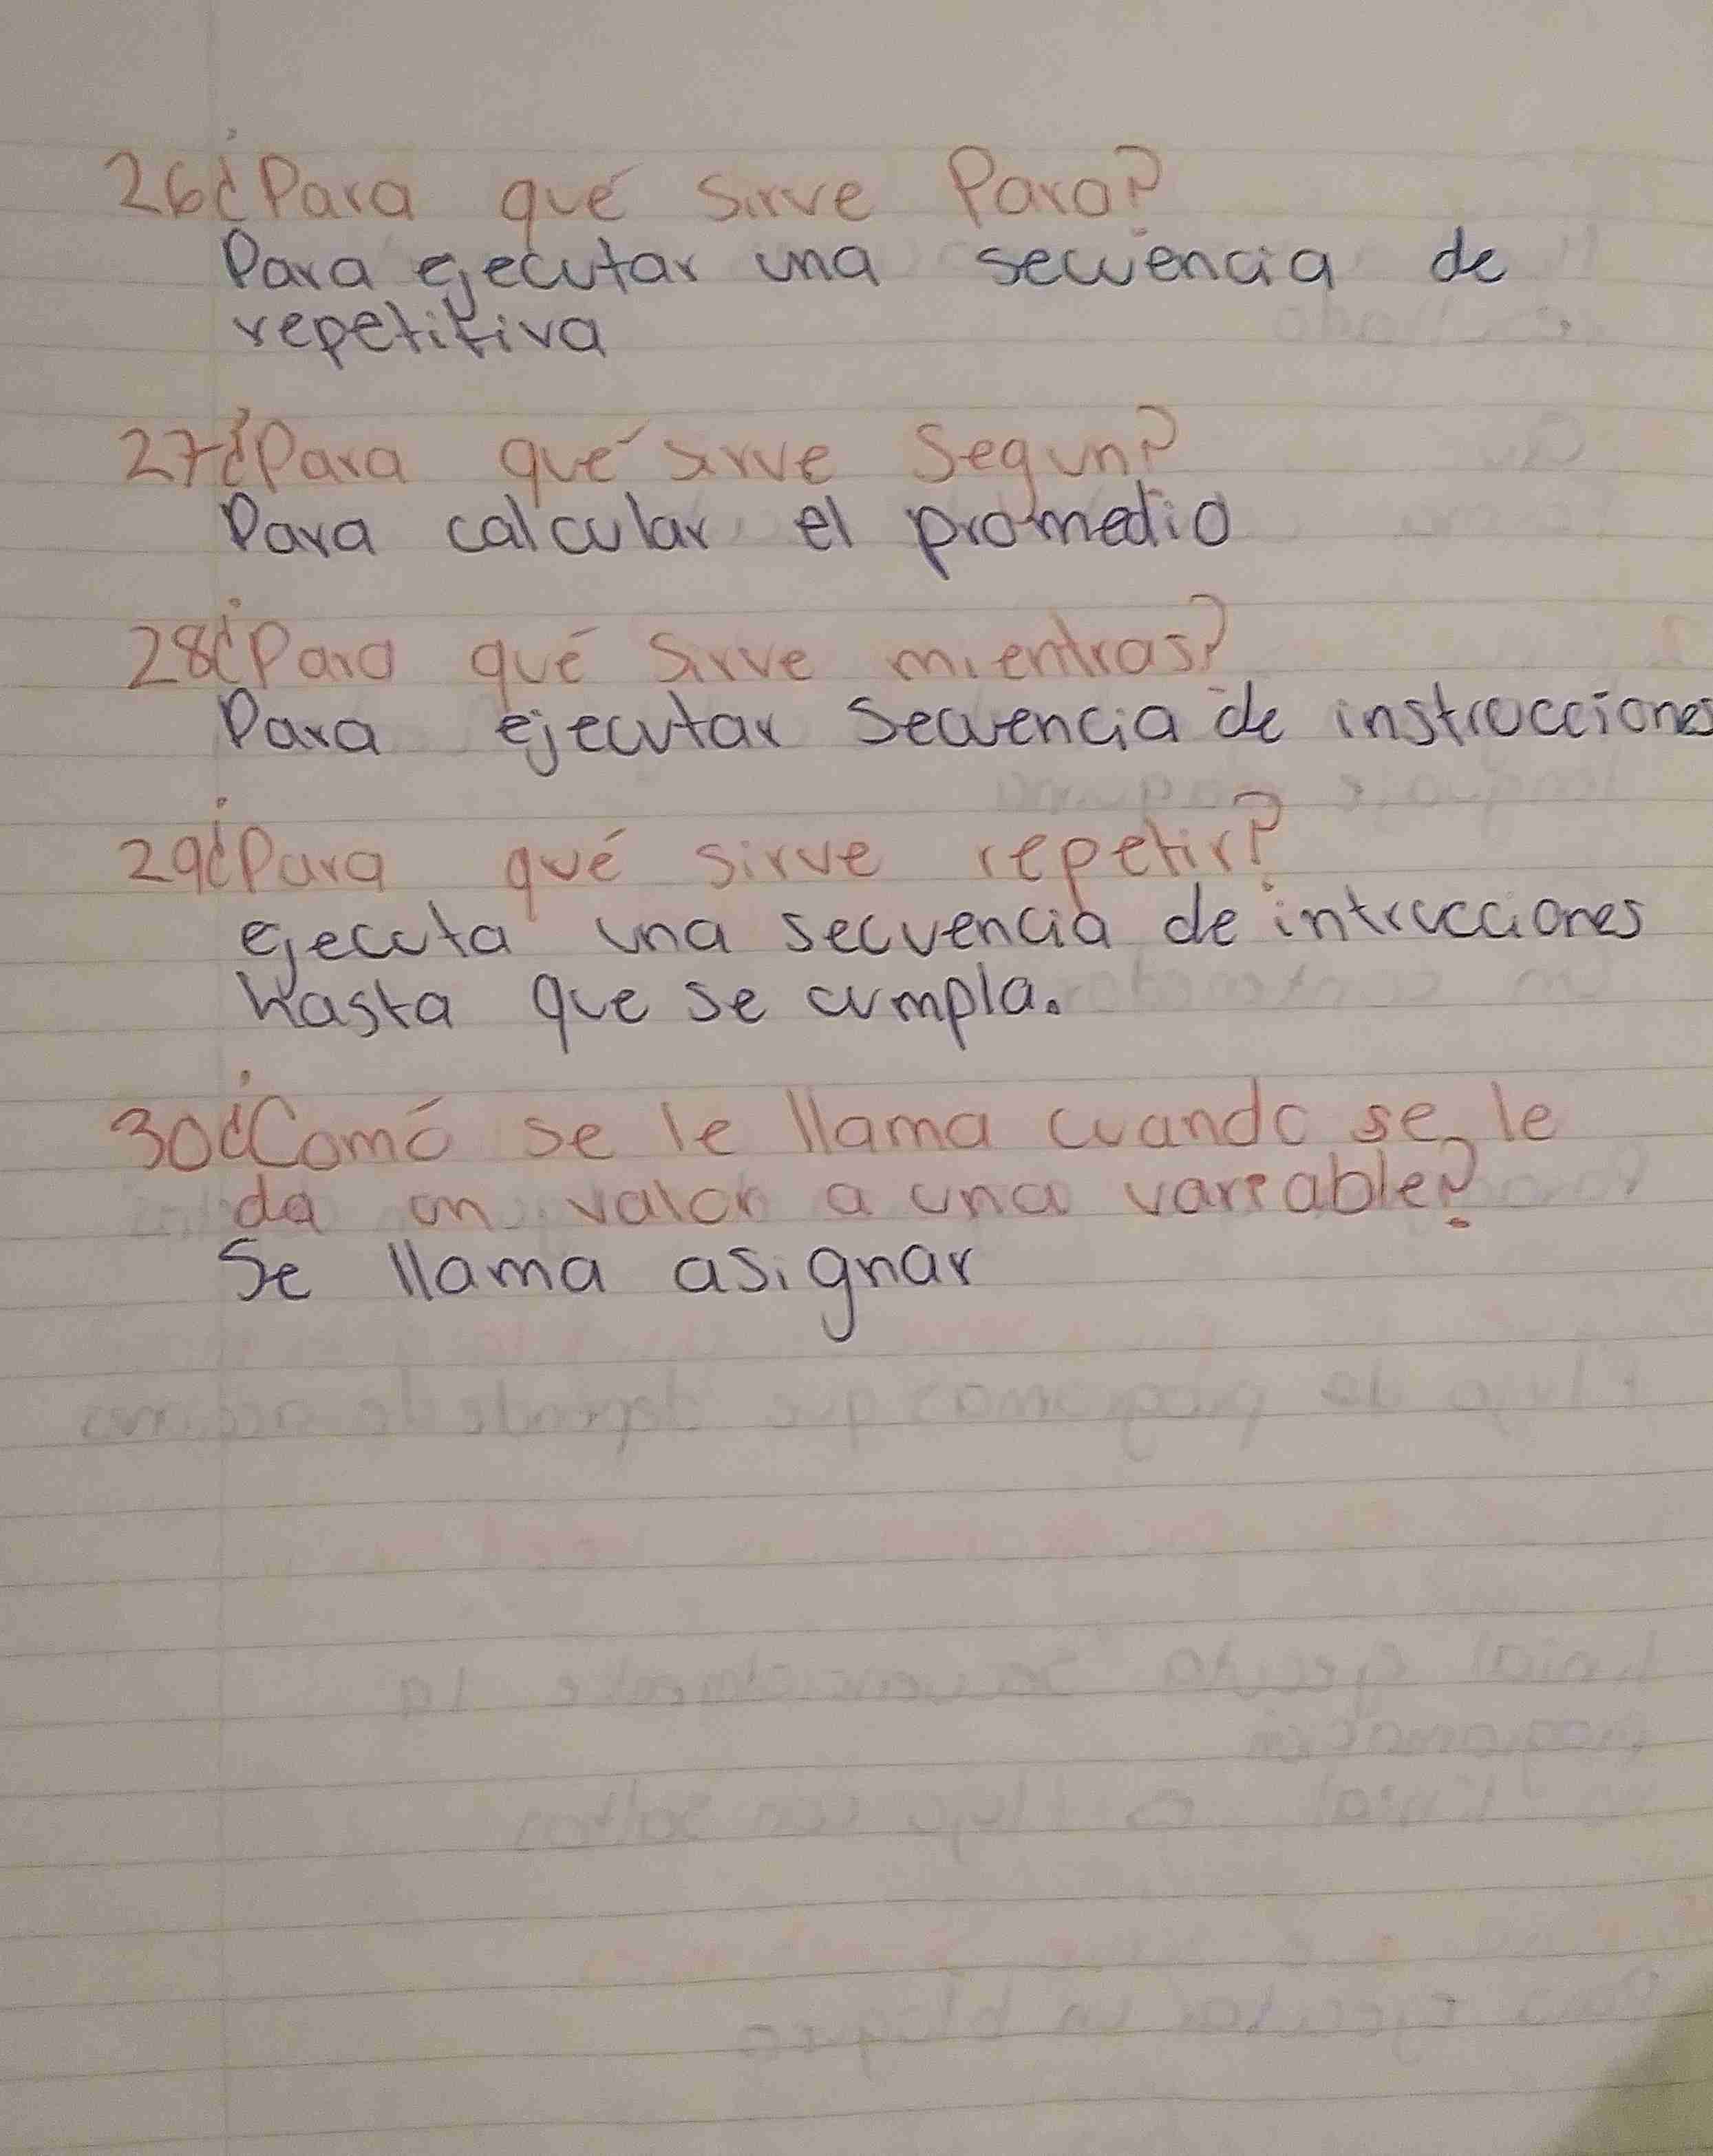 26¿Para qué sirve Para?
Para ejecutar una secuencia de
repetitiva
27¿Para qué sirve Segun?
Para calcular el promedio
28¿Para qué sirve mientras?
Para ejecutar Secuencia de instrucciones
29¿Para qué sirve repetir?
ejecuta una secuencia de intrucciones
hasta que se cumpla.
30¿Comó se le llama cuando se le
da un valor a una variable?
Se llama asignar